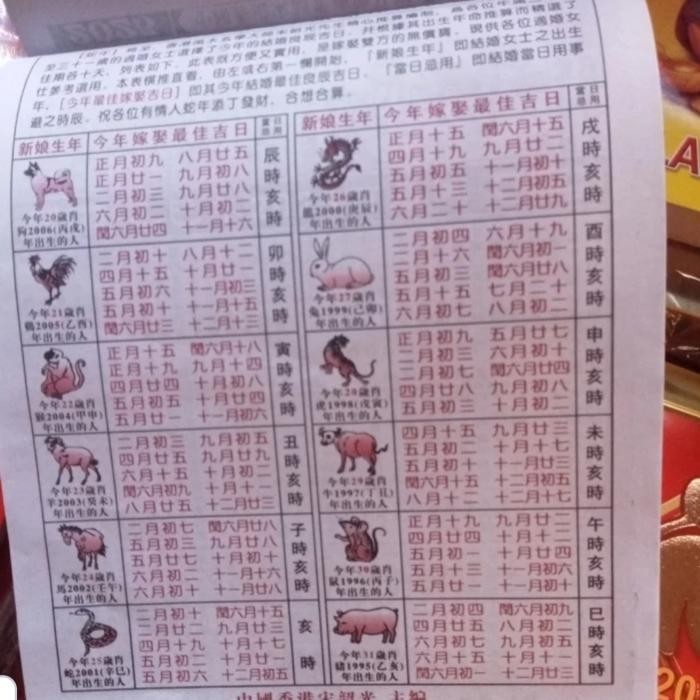 至三十一歲的適婚女士選擇了今年的結婚良辰吉日,並根據其出生年命推算而精選了
往期各十天,列表如下,此表既方便又實用,是嫁娶雙方的無價寶,現供各位適婚女
仕參考選用,本表橫推直看,由左或右第一欄開始,『新娘生年』即結婚女士之出生
年,[今年最佳嫁娶吉日]即其今年結婚最佳良辰吉日,『當日忌用』即結婚當日用事
避之時辰。祝各位有情人蛇年添丁發財,合想合算。
新娘生年 今年嫁娶最佳吉日 當日忌用
正月初九 八月廿五
正月廿一 九月初八
二月初三 九月廿八
六月初二 十月初二
閏六月廿四 十一月十六
辰時亥時
今年20歲肖
狗2006(丙戌)
年出生的人
二月初十 八月十二
四月十五 十月廿一
五月初六 十一月初三
五月初十 十一月十五
閏六月廿三 十二月十三
卯時亥時
今年21歲肖
鷄2005(乙酉)
年出生的人
正月十五 閏六月十八
正月十九 九月十四
四月廿四 十月初八
五月初五 十月廿四
五月廿一 十一月初六
寅時亥時
今年22歲肖
猴2004(甲申)
年出生的人
二月初三 九月初五
四月廿五 九月廿九
六月十五 十月初二
閏六月初九 十月十一
八月廿五 十二月廿三
丑時亥時
今年23歲肖
羊2003(癸未)
年出生的人
二月初七 閏六月廿八
五月初三 九月廿八
五月廿七 十月初十
六月初二 十一月十六
六月初十 十一月廿八
子時亥時
今年24歲肖
馬2002(壬午)
年出生的人
二月初十 閏六月十五
二月廿二 九月廿三
四月十九 十月十七
五月初二 十月廿一
六月廿六 十二月初五
亥時
今年25歲肖
蛇2001(辛巳)
年出生的人
新娘生年 今年嫁娶最佳吉日 當日忌用
正月十五 閏六月十五
四月十九 九月廿二
五月初五 十一月初十
五月十三 十二月初五
六月二十 十二月廿九
戌時亥時
今年26歲肖
龍2000(庚辰)
年出生的人
二月初四 六月十九
二月十六 閏六月初一
五月初三 閏六月廿八
五月十五 七月二十
六月初七 八月初二
酉時亥時
今年27歲肖
兔1999(己卯)
年出生的人
正月初九 五月廿七
二月初三 六月初十
二月初七 閏六月廿四
四月廿八 九月初八
五月初三 十月初二
申時亥時
今年28歲肖
虎1998(戊寅)
年出生的人
四月十五 九月廿三
五月初二 十月十七
五月初十 十一月廿三
閏六月十五 十二月初五
八月十二 十二月十七
未時亥時
今年29歲肖
牛1997(丁丑)
年出生的人
正月十九 九月廿二
四月廿四 十月十二
五月初一 十月廿四
五月十三 十一月初六
五月廿一 十一月初十
午時亥時
今年30歲肖
鼠1996(丙子)
年出生的人
二月初四 閏六月初九
四月廿五 八月初二
六月初七 九月初五
六月十五 十月十一
閏六月初一 十二月廿三
巳時亥時
今年31歲肖
豬1995(乙亥)
年出生的人
中國香港宋韶光 主編